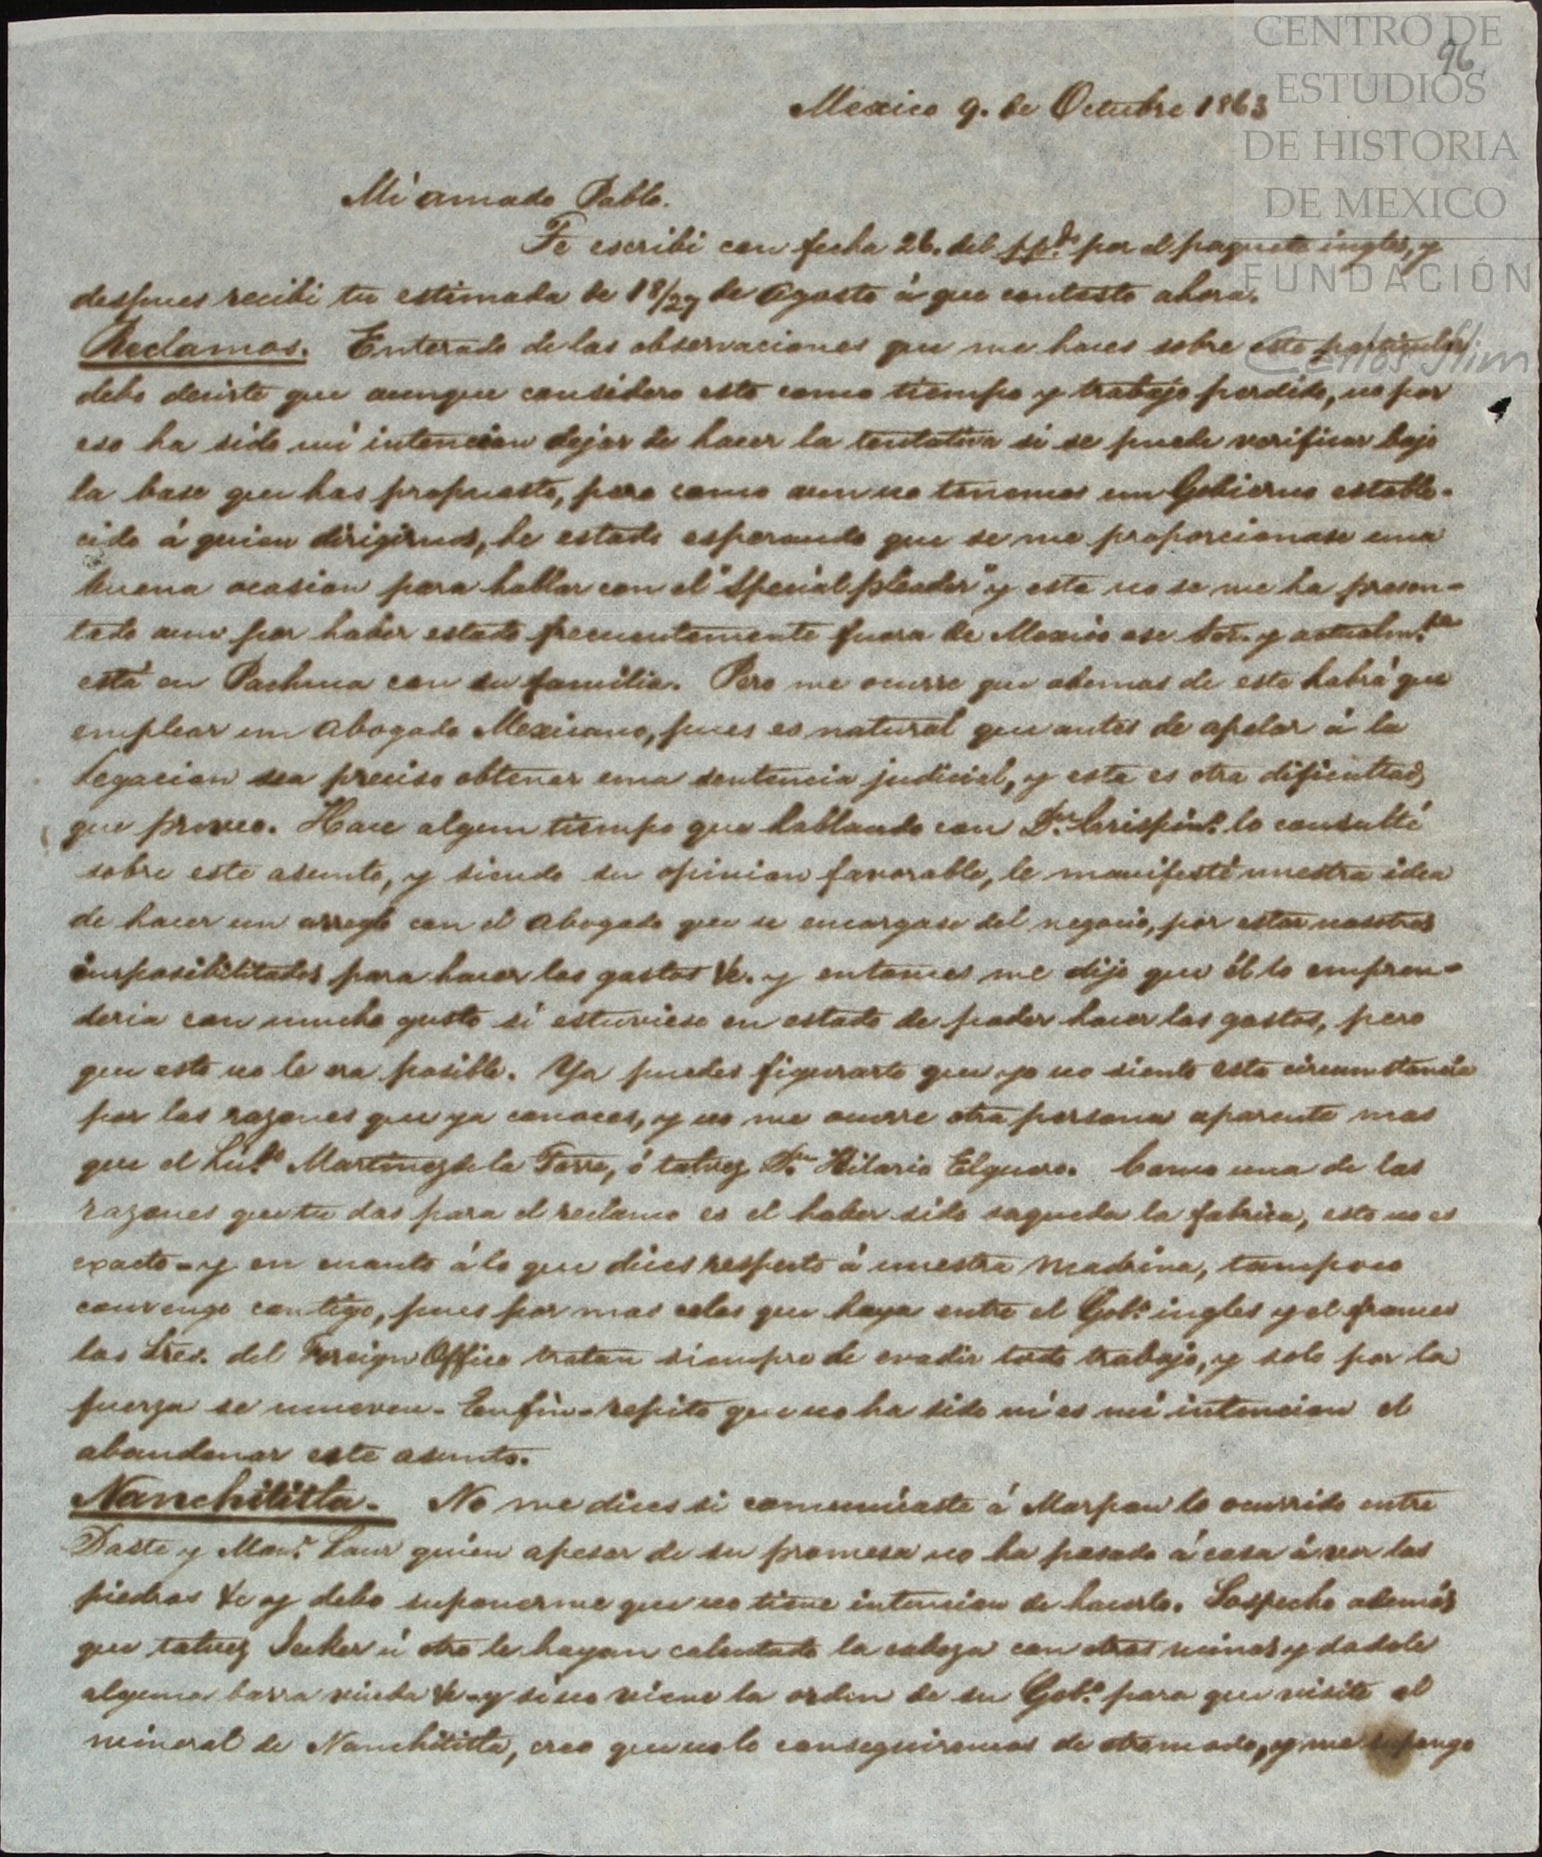 96
CENTRO DE
ESTUDIOS
DE HISTORIA
DE MEXICO
FUNDACIÓN
Carlos Slim
Mexico 9. de Octubre 1863
Mi amado Pablo.
Te escribi con fecha 26. del pp.do por el paquete ingles, y
despues recibi tu estimada de 18/27 de Agosto á que contesto ahora.
Reclamos. Enterado de las observaciones que me haces sobre este particular
debo decirte que aunque considero esto como tiempo y trabajo perdido, no por
eso ha sido mi intencion dejar de hacer la tentativa si se puede verificar bajo
la base que has propuesto, pero como aun no tenemos un Gobierno estable-
cido á quien dirigirnos, he estado esperando que se me proporcionase una
buena ocasion para hablar con el "Special pleader" y esta no se me ha presen-
tado aun por haber estado frecuentemente fuera de Mexico ese Sor. y actualm.te
está en Pachuca con su familia. Pero me ocurre que ademas de este habrá que
emplear un Abogado Mexicano, pues es natural que antes de apelar á la
Legacion sea preciso obtener una sentencia judicial, y esta es otra dificultad
que preveo. Hace algun tiempo que hablando con Dn. Crispin. lo consulté
sobre este asunto, y siendo su opinion favorable, le manifesté nuestra idea
de hacer un arreglo con el Abogado que se encargase del negocio, por estar nosotros
imposibilitados para hacer los gastos &c. y entonces me dijo que él lo empren-
deria con mucho gusto si estuviese en estado de poder hacer los gastos, pero
que esto no le era posible. Ya puedes figurarte que yo no siento esta circumstancia
por las razones que ya conoces, y no me ocurre otra persona aparente mas
que el Lic.do Martinez de la Torre, ó talvez Dn. Hilario Elguero. Como una de las
razones que tu das para el reclamo es el haber sido saqueda la fabrica, esto no es
exacto - y en cuanto á lo que dices respecto á nuestra Madrina, tampoco
convengo contigo, pues por mas celos que haya entre el Gob.o ingles y el frances
los Sres. del Foreign Office tratan siempre de evadir todo trabajo, y solo por la
fuerza se mueven. En fin - repito que no ha sido ni es mi intencion el
abandonar este asunto.
Nanchititla. No me dices si comunicaste á Marpon lo ocurrido entre
Daste y Mon.r Laur quien apesar de su promesa no ha pasado á casa á ver las
piedras &c y debo suponerme que no tiene intencion de hacerlo. Sospecho además
que talvez Jecker ú otro le hayan calentado la cabeza con otras minas y dadole
alguna barra viuda &c - y si no viene la orden de su Gob.o para que visite el
mineral de Nanchititla, creo que no lo conseguiremos de otro modo, y me supongo